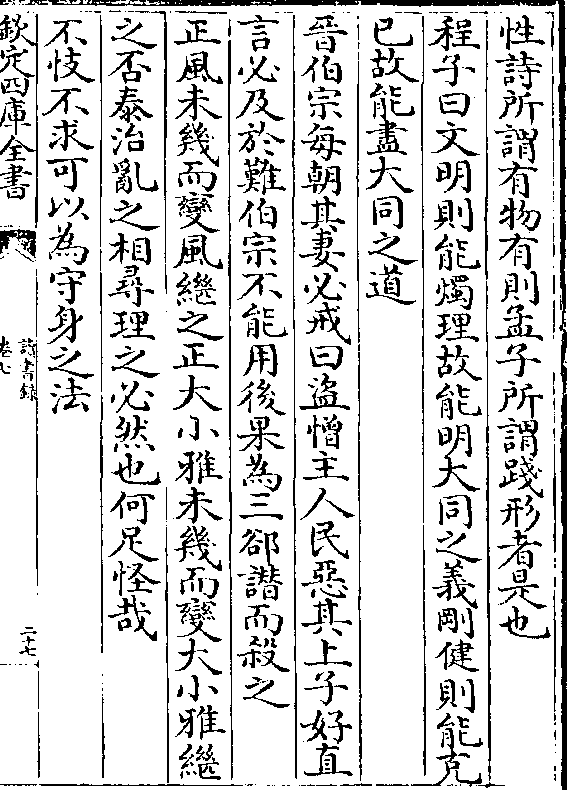 性詩所謂有物有則孟子所謂踐形者是也
程子曰文明則能燭理故能明大同之義剛健則能克
已故能盡大同之道
晉伯宗每朝其妻必戒曰盜憎主人民惡其上子好直
言必及於難伯宗不能用後果為三郤譖而殺之
正風未幾而變風繼之正大小雅未幾而變大小雅繼
之否泰治亂之相尋理之必然也何足怪哉
不忮不求可以為守身之法
欽定四庫全書
讀書錄
卷七
二十七